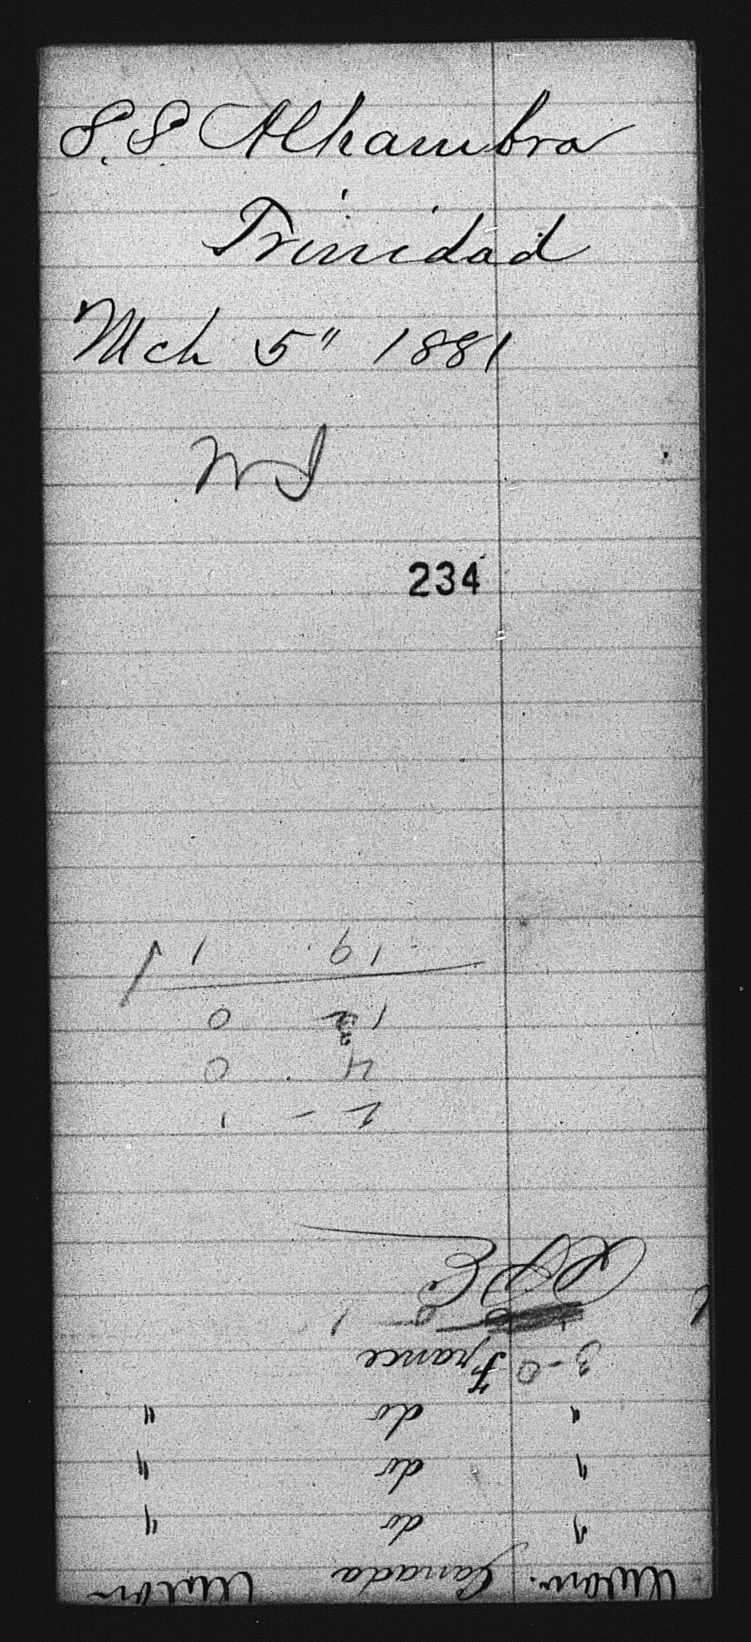 S.S Alhambra
Trinidad
Mch 5" 1881
W I
234
Canada
" do "
" do "
" do "
3-0 France
2 - 1
4 0
12 0
19 1